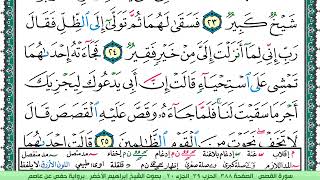 شَيْخٌ كَبِيرٌ ٢٣ فَسَقَىٰ لَهُمَا ثُمَّ تَوَلَّىٰٓ إِلَى ٱلظِّلِّ فَقَالَ
رَبِّ إِنِّي لِمَآ أَنزَلْتَ إِلَيَّ مِنْ خَيْرٍ فَقِيرٌ ٢٤ فَجَآءَتْهُ إِحْدَىٰهُمَا
تَمْشِي عَلَى ٱسْتِحْيَآءٍ قَالَتْ إِنَّ أَبِي يَدْعُوكَ لِيَجْزِيَكَ
أَجْرَ مَا سَقَيْتَ لَنَا فَلَمَّا جَآءَهُۥ وَقَصَّ عَلَيْهِ ٱلْقَصَصَ قَالَ
لَا تَخَفْ نَجَوْتَ مِنَ ٱلْقَوْمِ ٱلظَّٰلِمِينَ ٢٥ قَالَتْ إِحْدَىٰهُمَا
سورة القصص الصفحة ٣٨٨ الحزب ٣٩ الجزء ٢٠ بصوت الشيخ إبراهيم الأخضر برواية حفص عن عاصم